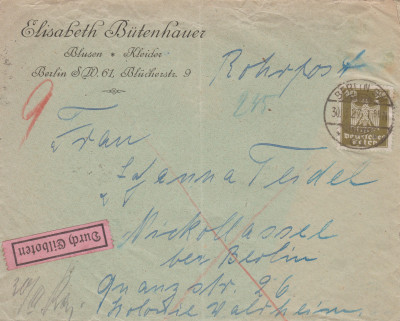 Elisabeth Bütenhauer
Blusen • Kleider
Berlin S.W. 61, Blücherstr. 9
Rohrpost
9
245
BERLIN
30
Deutsches
Reich
Frau
Johanna Teidel
Nickollassee
bei Berlin
Quanzstr. 26
Kolonie Waldheim
Durch Eilboten